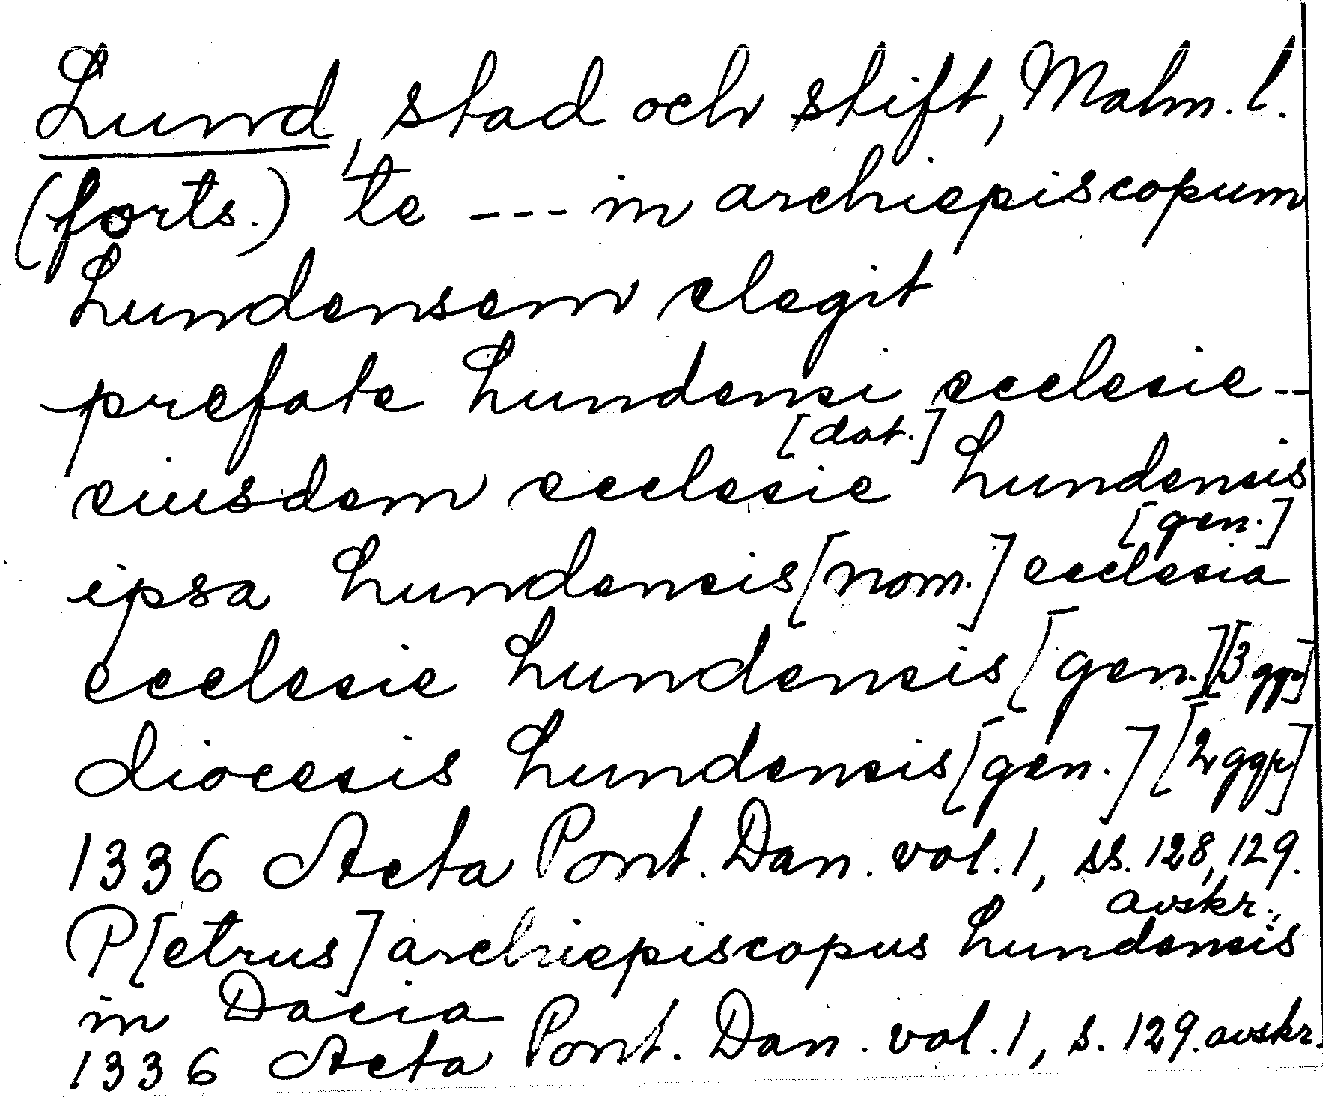 Lund, stad och stift, Malm. l.
(forts.) te --- in archiepiscopum
Lundensem elegit
prefate Lundensi ecclesie --
[dat.]
eiusdem ecclesie Lundensis
[gen.]
ipsa Lundensis [nom.] ecclesia
ecclesie Lundensis [gen.] [3 ggr]
diocesis Lundensis [gen.] [2 ggr]
1336 Acta Pont. Dan. vol. 1, ss. 128, 129.
avskr.
P[etrus] archiepiscopus Lundensis
in Dacia
1336 Acta Pont. Dan. vol. 1, s. 129. avskr.